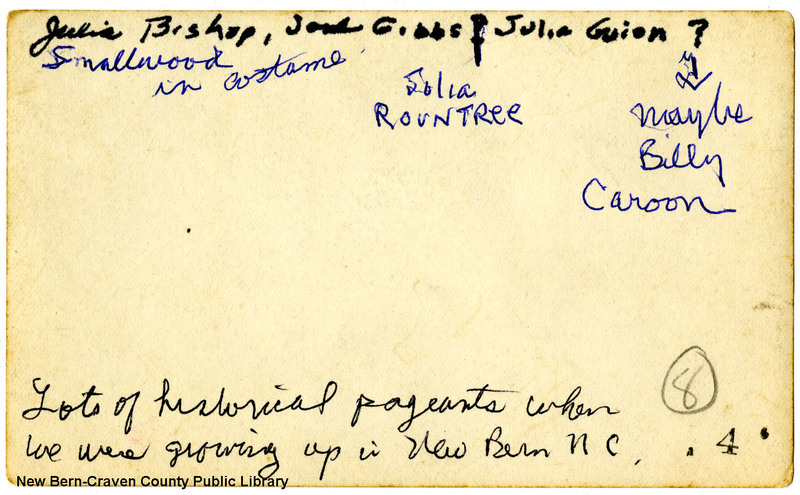 Julia Bishop, Gibbs ? Julia Guion ?
Smallwood
in costume
Julia
ROUNTREE
maybe
Billy
Caroon
8
Lots of historical pageants when
we were growing up in New Bern N C.
. 4 .
New Bern-Craven County Public Library